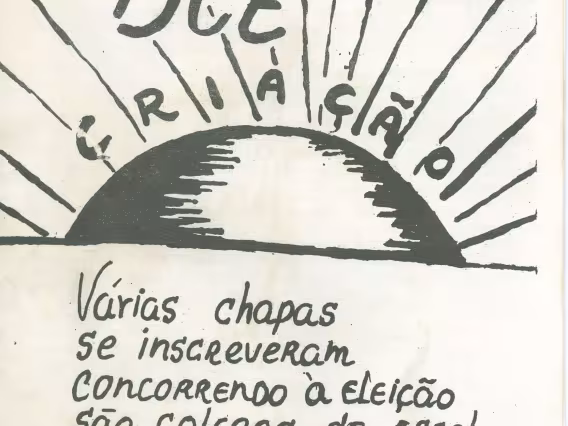 DCE
CRIAÇÃO
Várias chapas
se inscreveram
concorrendo à eleição
são